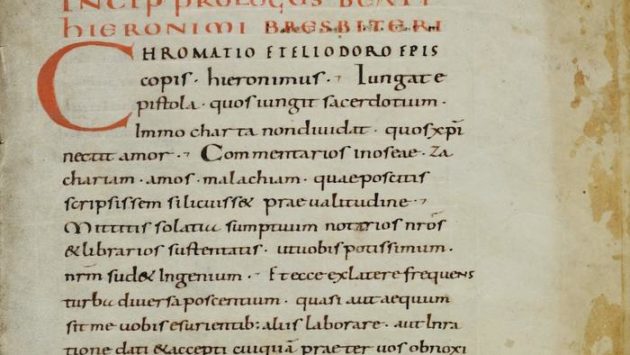 INCIP PROLOGUS BEATI
HIERONIMI BRESBITERI
CHROMATIO ET ELIODORO EPIS
copis · hieronimus · Iungat e
pistola · quos iungit sacerdotium ·
Immo charta non dividat · quos xp̄i
nectit amor · Commentarios in oseae · Za
chariam · amos · malachiam · quae poscitis
scripsissem si licuiss& prae valitudine ·
Mittitis solatia sumptuum notarios nr̄os
& librarios sustentatis · ut vobis potissimum ·
nr̄m sud& Ingenium · Et ecce ex latere frequens
turba diversa poscentium · quasi aut aequum
sit me vobis esurientib: aliis laborare · aut In ra
tione dati & accepti cuiquā praeter vos obnoxi